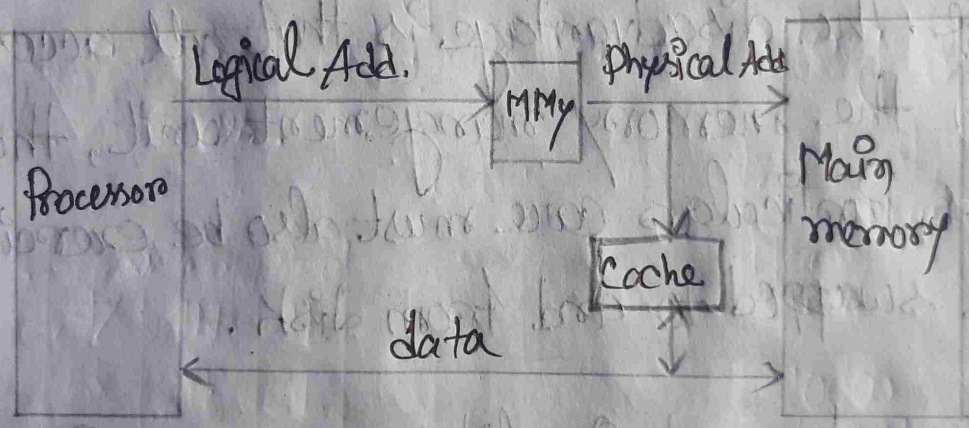 Logical Add.
Physical Add
MMy
Processor
Main
memory
Cache
data